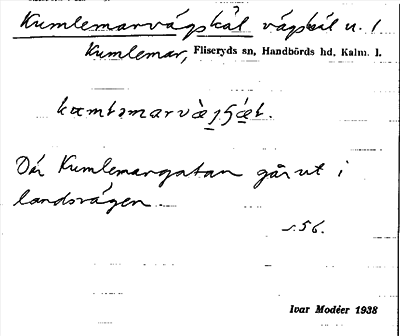 Kumlemarvägskäl vägskäl n. 1
Kumlemar, Fliseryds sn, Handbörds hd, Kalm. l.
Där Kumlemargatan går ut i
landsvägen.
s. 56.
Ivar Modéer 1938